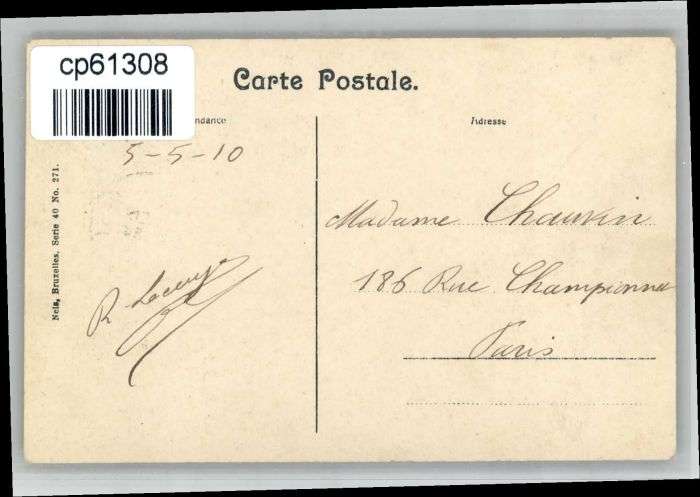 cp61308
Carte Postale.
ndance
Adresse
5-5-10
Madame Chauvin
186 Rue Championnet
Paris
R.
Nels, Bruxelles, Serie 40 No. 271.